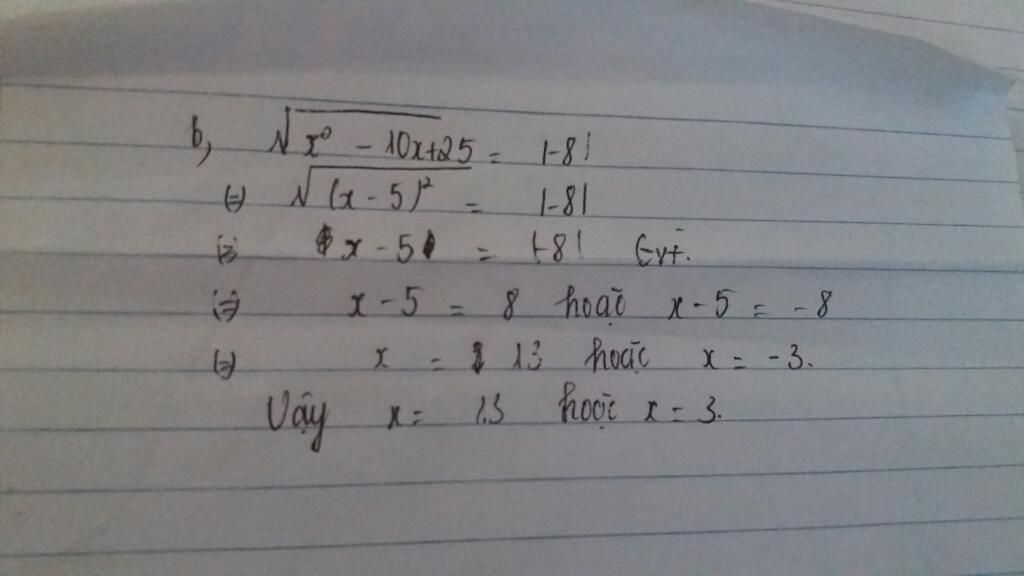 b, √x² - 10x+25 = |-8|
(=) √(x - 5)² = |-8|
(=) x - 5 = |-8|
(=) x - 5 = 8 hoặc x - 5 = -8
(=) x = 13 hoặc x = -3.
Vậy x = 13 hoặc x = 3.